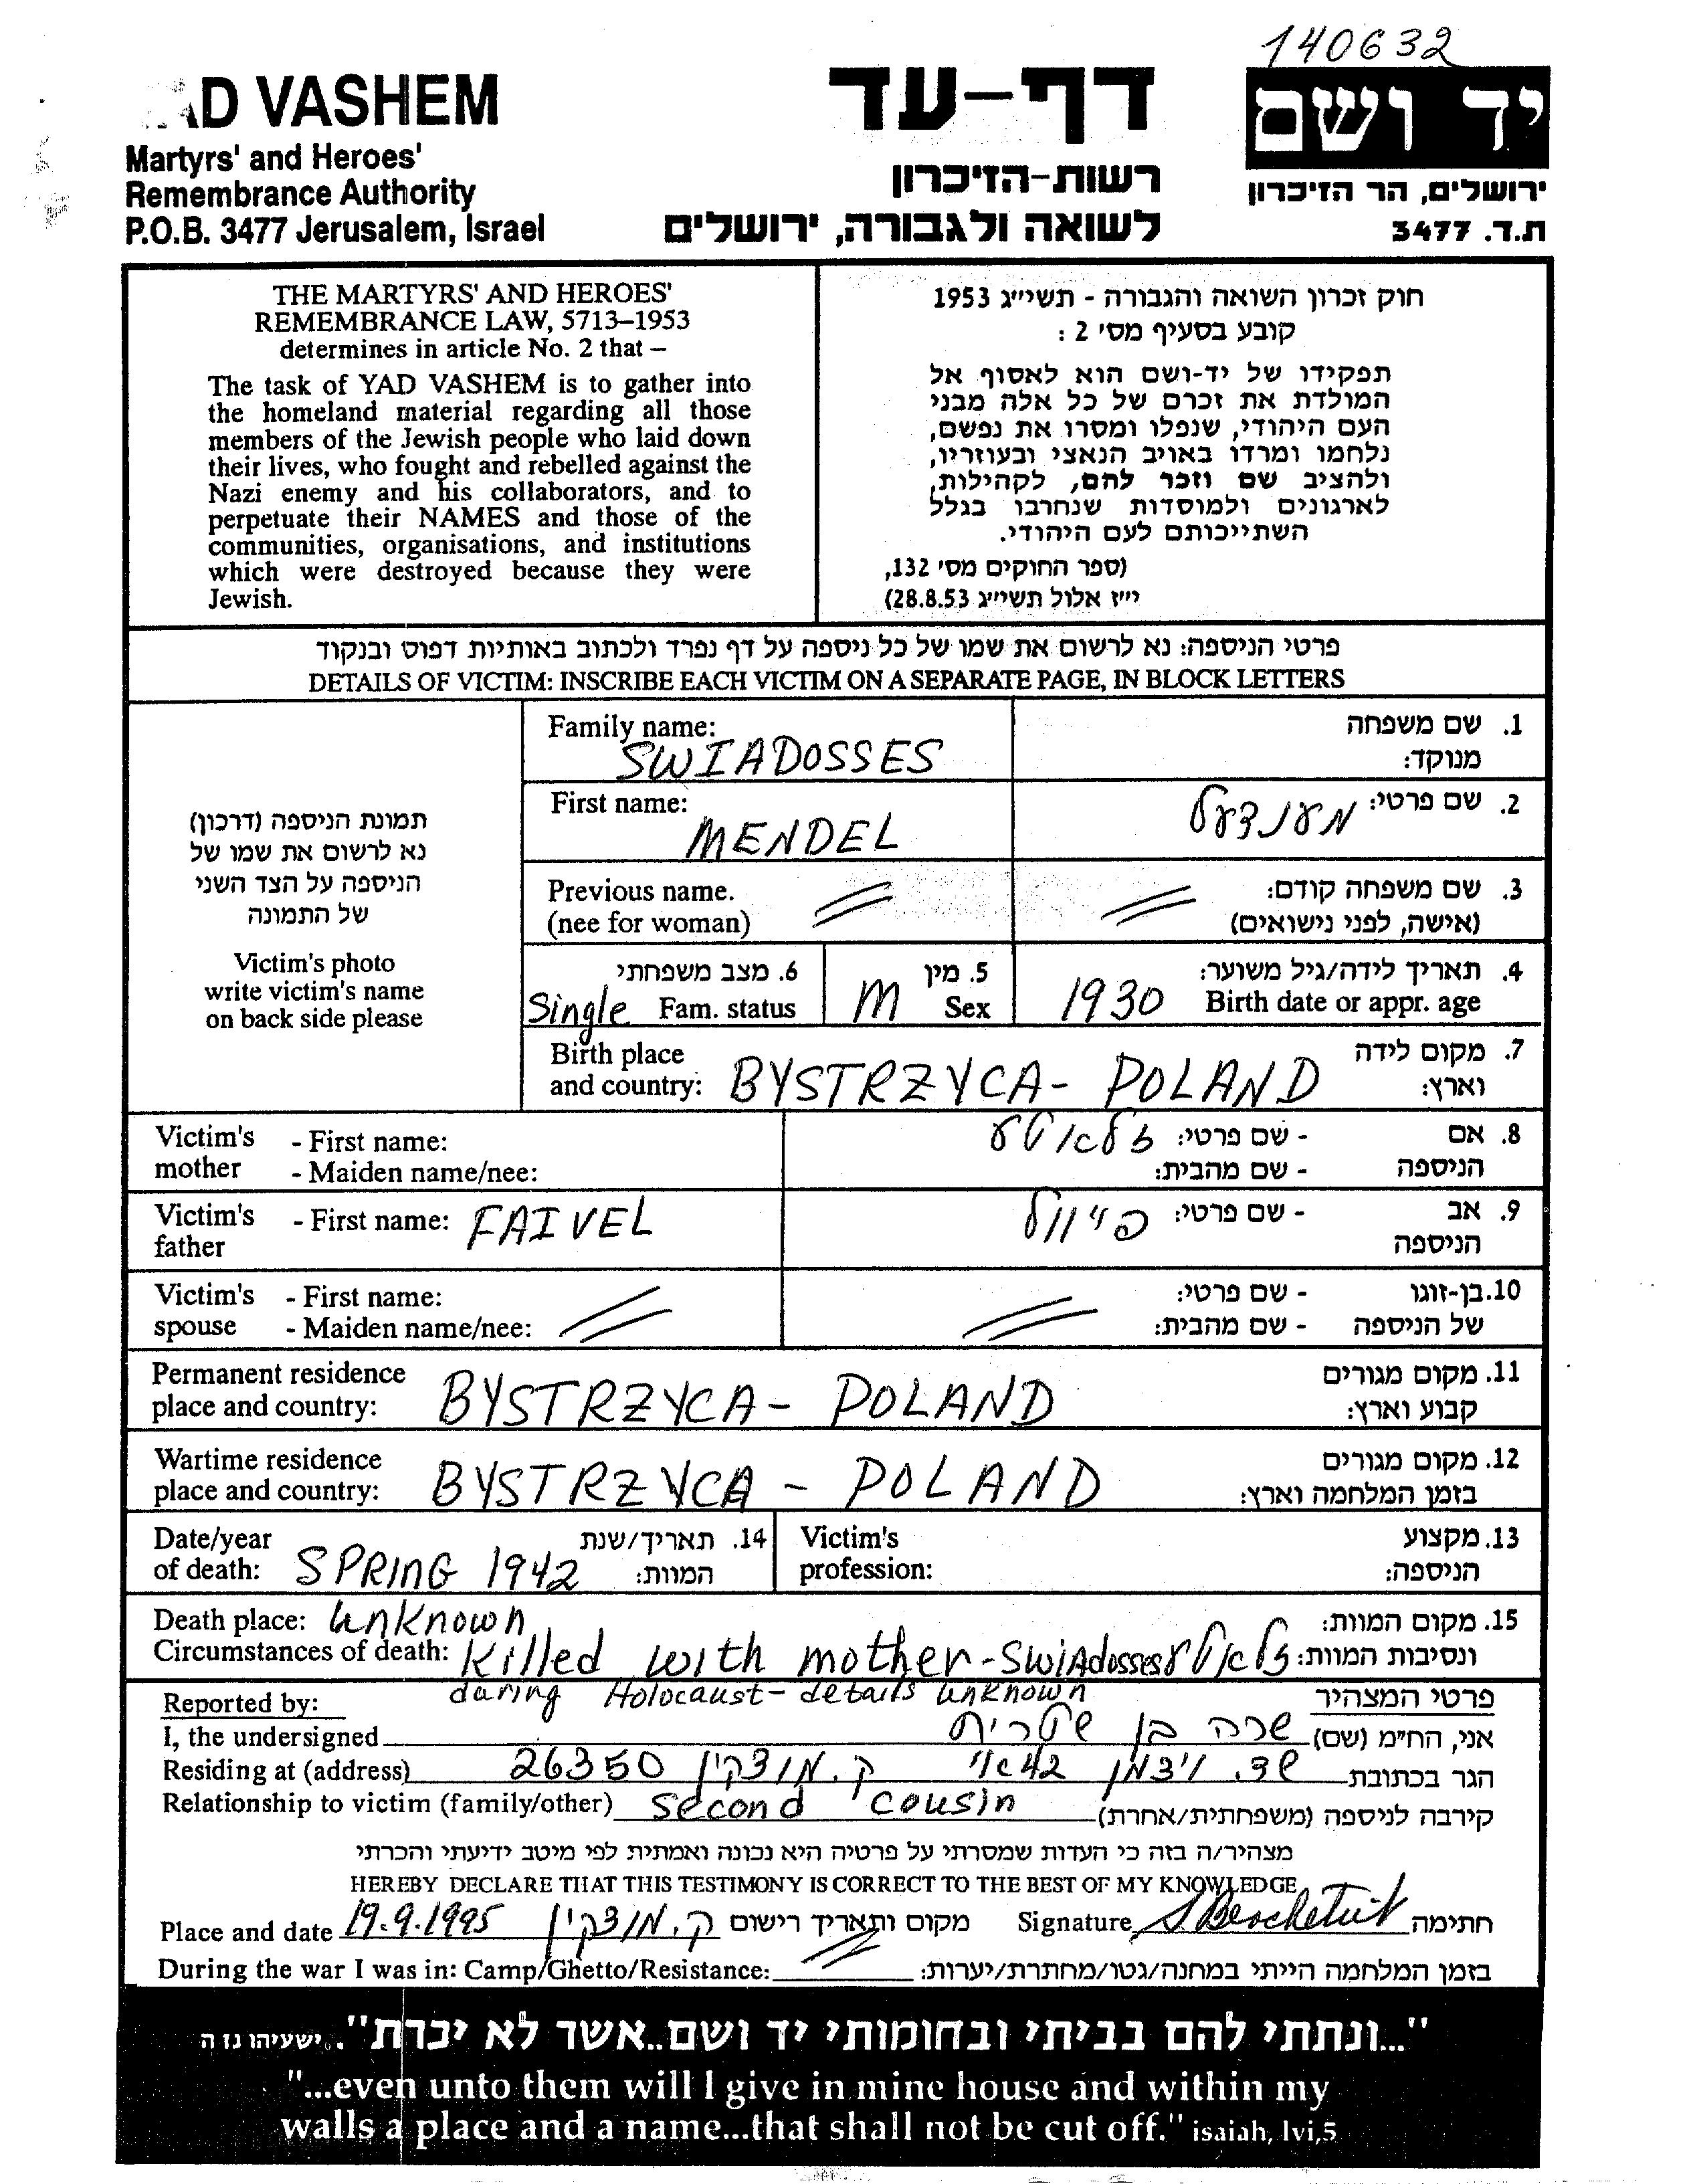 140632
YAD VASHEM
Martyrs' and Heroes'
Remembrance Authority
P.O.B. 3477 Jerusalem, Israel
דף-עד
רשות-הזיכרון
לשואה ולגבורה, ירושלים
יד ושם
ירושלים, הר הזיכרון
ת.ד. 3477
THE MARTYRS' AND HEROES'
REMEMBRANCE LAW, 5713–1953
determines in article No. 2 that –
The task of YAD VASHEM is to gather into
the homeland material regarding all those
members of the Jewish people who laid down
their lives, who fought and rebelled against the
Nazi enemy and his collaborators, and to
perpetuate their NAMES and those of the
communities, organisations, and institutions
which were destroyed because they were
Jewish.
חוק זכרון השואה והגבורה - תשי״ג 1953
קובע בסעיף מס׳ 2 :
תפקידו של יד-ושם הוא לאסוף אל
המולדת את זכרם של כל אלה מבני
העם היהודי, שנפלו ומסרו את נפשם,
נלחמו ומרדו באויב הנאצי ובעוזריו,
ולהציב שם וזכר להם, לקהילות,
לארגונים ולמוסדות שנחרבו בגלל
השתייכותם לעם היהודי.
(ספר החוקים מס׳ 132,
י״ז אלול תשי״ג 28.8.53)
פרטי הניספה: נא לרשום את שמו של כל ניספה על דף נפרד ולכתוב באותיות דפוס ובנקוד
DETAILS OF VICTIM: INSCRIBE EACH VICTIM ON A SEPARATE PAGE, IN BLOCK LETTERS
תמונת הניספה (דרכון)
נא לרשום את שמו של
הניספה על הצד השני
של התמונה
Victim's photo
write victim's name
on back side please
Family name: SWIADOSSES
1. שם משפחה
מנוקד:
First name: MENDEL
2. שם פרטי: מענדעל
Previous name.
(nee for woman)
3. שם משפחה קודם:
(אישה, לפני נישואים)
6. מצב משפחתי
Single Fam. status
5. מין
M Sex
4. תאריך לידה/גיל משוער:
1930 Birth date or appr. age
Birth place
and country: BYSTRZYCA - POLAND
7. מקום לידה
וארץ:
Victim's mother - First name:
- Maiden name/nee:
8. אם הניספה - שם פרטי: זלאטע
- שם מהבית:
Victim's father - First name: FAIVEL
9. אב הניספה - שם פרטי: פייוול
Victim's spouse - First name:
- Maiden name/nee:
10. בן-זוגו של הניספה - שם פרטי:
- שם מהבית:
Permanent residence
place and country: BYSTRZYCA - POLAND
11. מקום מגורים
קבוע וארץ:
Wartime residence
place and country: BYSTRZYCA - POLAND
12. מקום מגורים
בזמן המלחמה וארץ:
Date/year
of death: SPRING 1942
14. תאריך/שנת
המוות:
Victim's
profession:
13. מקצוע
הניספה:
Death place: unknown
15. מקום המוות:
Circumstances of death: killed with mother - Swiadosses זלאטע ונסיבות המוות:
during Holocaust - details unknown
Reported by:
פרטי המצהיר
I, the undersigned שרה בן שטרית אני, הח״מ (שם)
Residing at (address) שד. ויצמן 42א׳ ק. מוצקין 26350 הגר בכתובת
Relationship to victim (family/other) second cousin קירבה לניספה (משפחתית/אחרת)
מצהיר/ה בזה כי העדות שמסרתי על פרטיה היא נכונה ואמתית לפי מיטב ידיעתי והכרתי
HEREBY DECLARE THAT THIS TESTIMONY IS CORRECT TO THE BEST OF MY KNOWLEDGE
Place and date 19.9.1995 ק. מוצקין מקום ותאריך רישום Signature חתימה
During the war I was in: Camp/Ghetto/Resistance: בזמן המלחמה הייתי במחנה/גטו/מחתרת/יערות:
"...ונתתי להם בביתי ובחומותי יד ושם..אשר לא יכרת". ישעיהו נו ה
"...even unto them will I give in mine house and within my
walls a place and a name...that shall not be cut off." isaiah, lvi,5